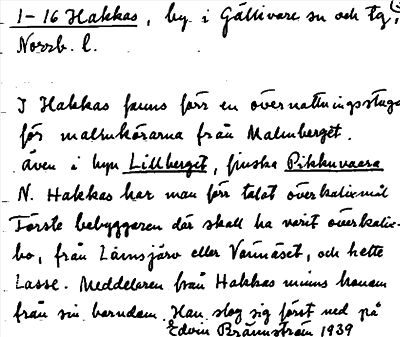 1-16 Hakkas, by i Gällivare sn och tg,
Norrb. l.
I Hakkas fanns förr en övernattningsstuga
för malmkörarna från Malmberget.
även i byn Lillberget, finska Pikkuvaara
N. Hakkas har man förr talat överkalixmål
Förste bebyggaren där skall ha varit överkalix-
bo, från Lännsjärv eller Vännäset, och hette
Lasse. Meddelaren från Hakkas minns honom
från sin barndom. Han slog sig först ned på
Edvin Brännström 1939